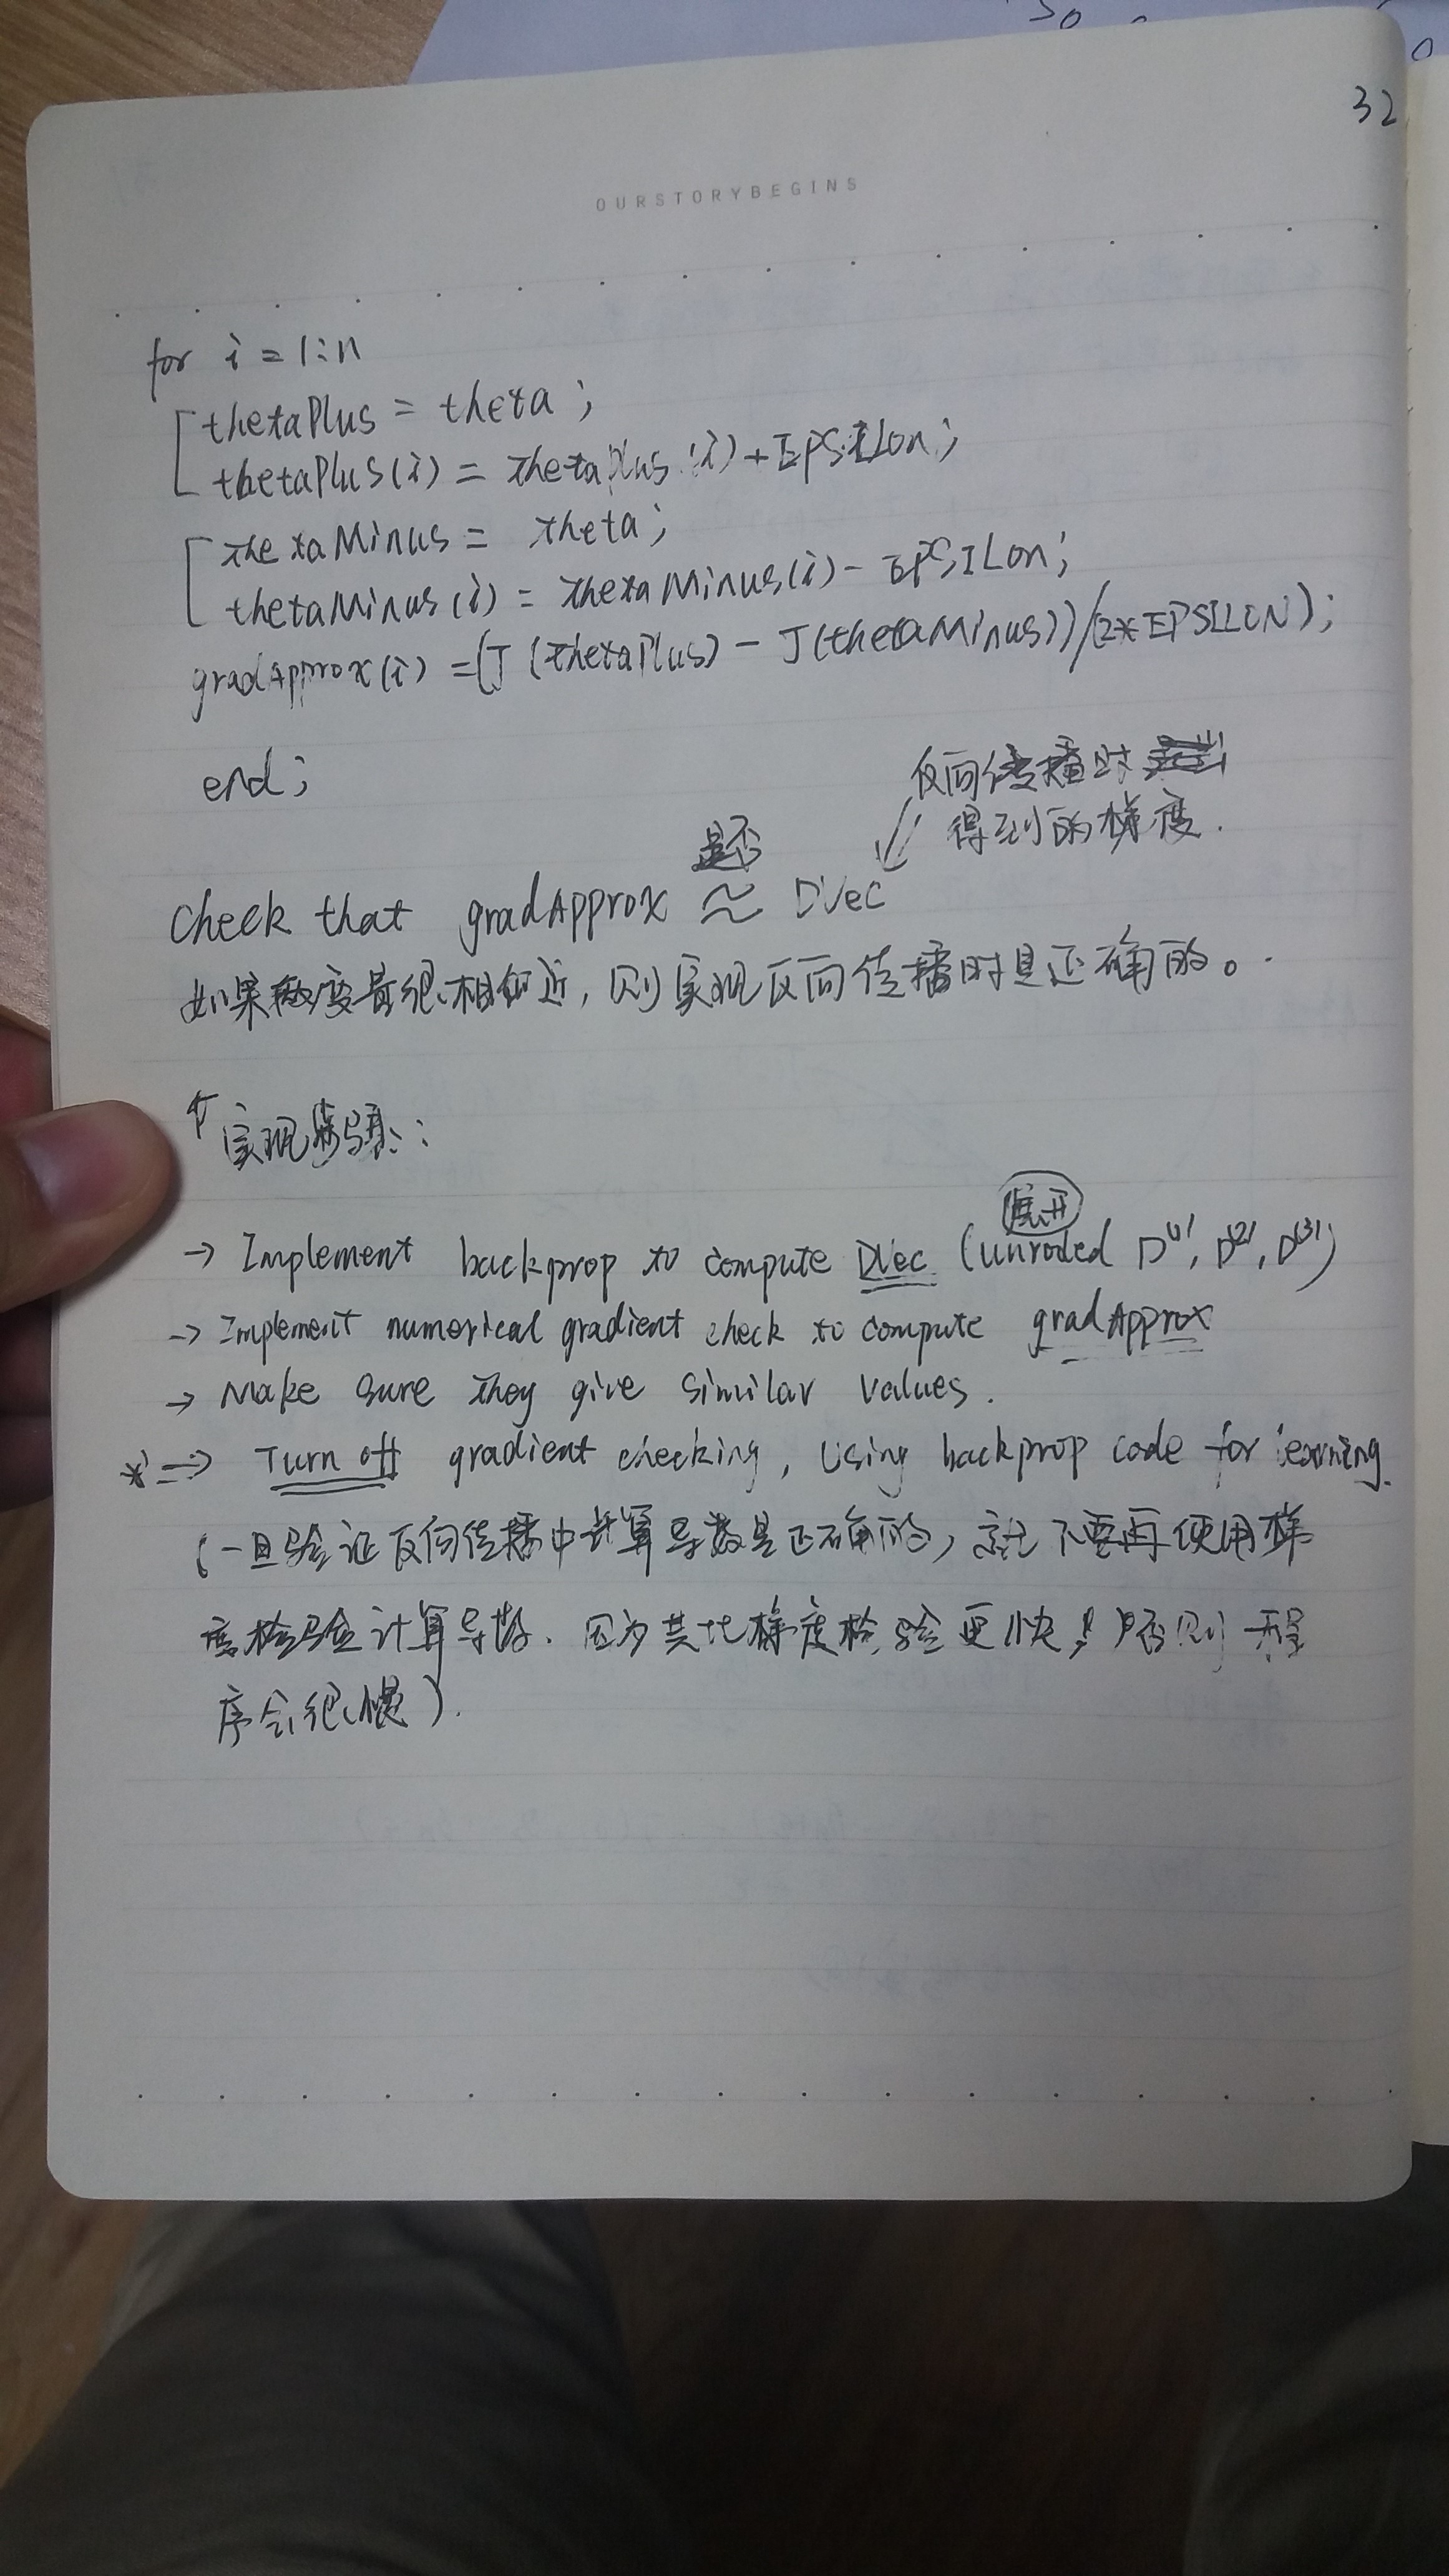 32
OURSTORYBEGINS
for i = 1:n
thetaPlus = theta;
thetaPlus(i) = thetaPlus(i) + EPSILon;
thetaMinus = theta;
thetaMinus(i) = thetaMinus(i) - EPSILon;
gradApprox(i) = (J(thetaPlus) - J(thetaMinus))/(2*EPSILON);
end;
反向传播时
得到的梯度.
是否
Check that gradApprox ≈ DVec
如果 很相近, 则实现反向传播时是正确的。
实现步骤:
展开
→ Implement backprop to compute DVec (unrolled D⁽¹⁾, D⁽²⁾, D⁽³⁾)
→ Implement numerical gradient check to compute gradApprox
→ Make sure they give similar values.
* ⇒ Turn off gradient checking, Using backprop code for learning.
(一旦验证反向传播中计算导数是正确的, 就不要再使用梯
度检验计算导数. 因为其比梯度检验更快! 否则程
序会很慢).